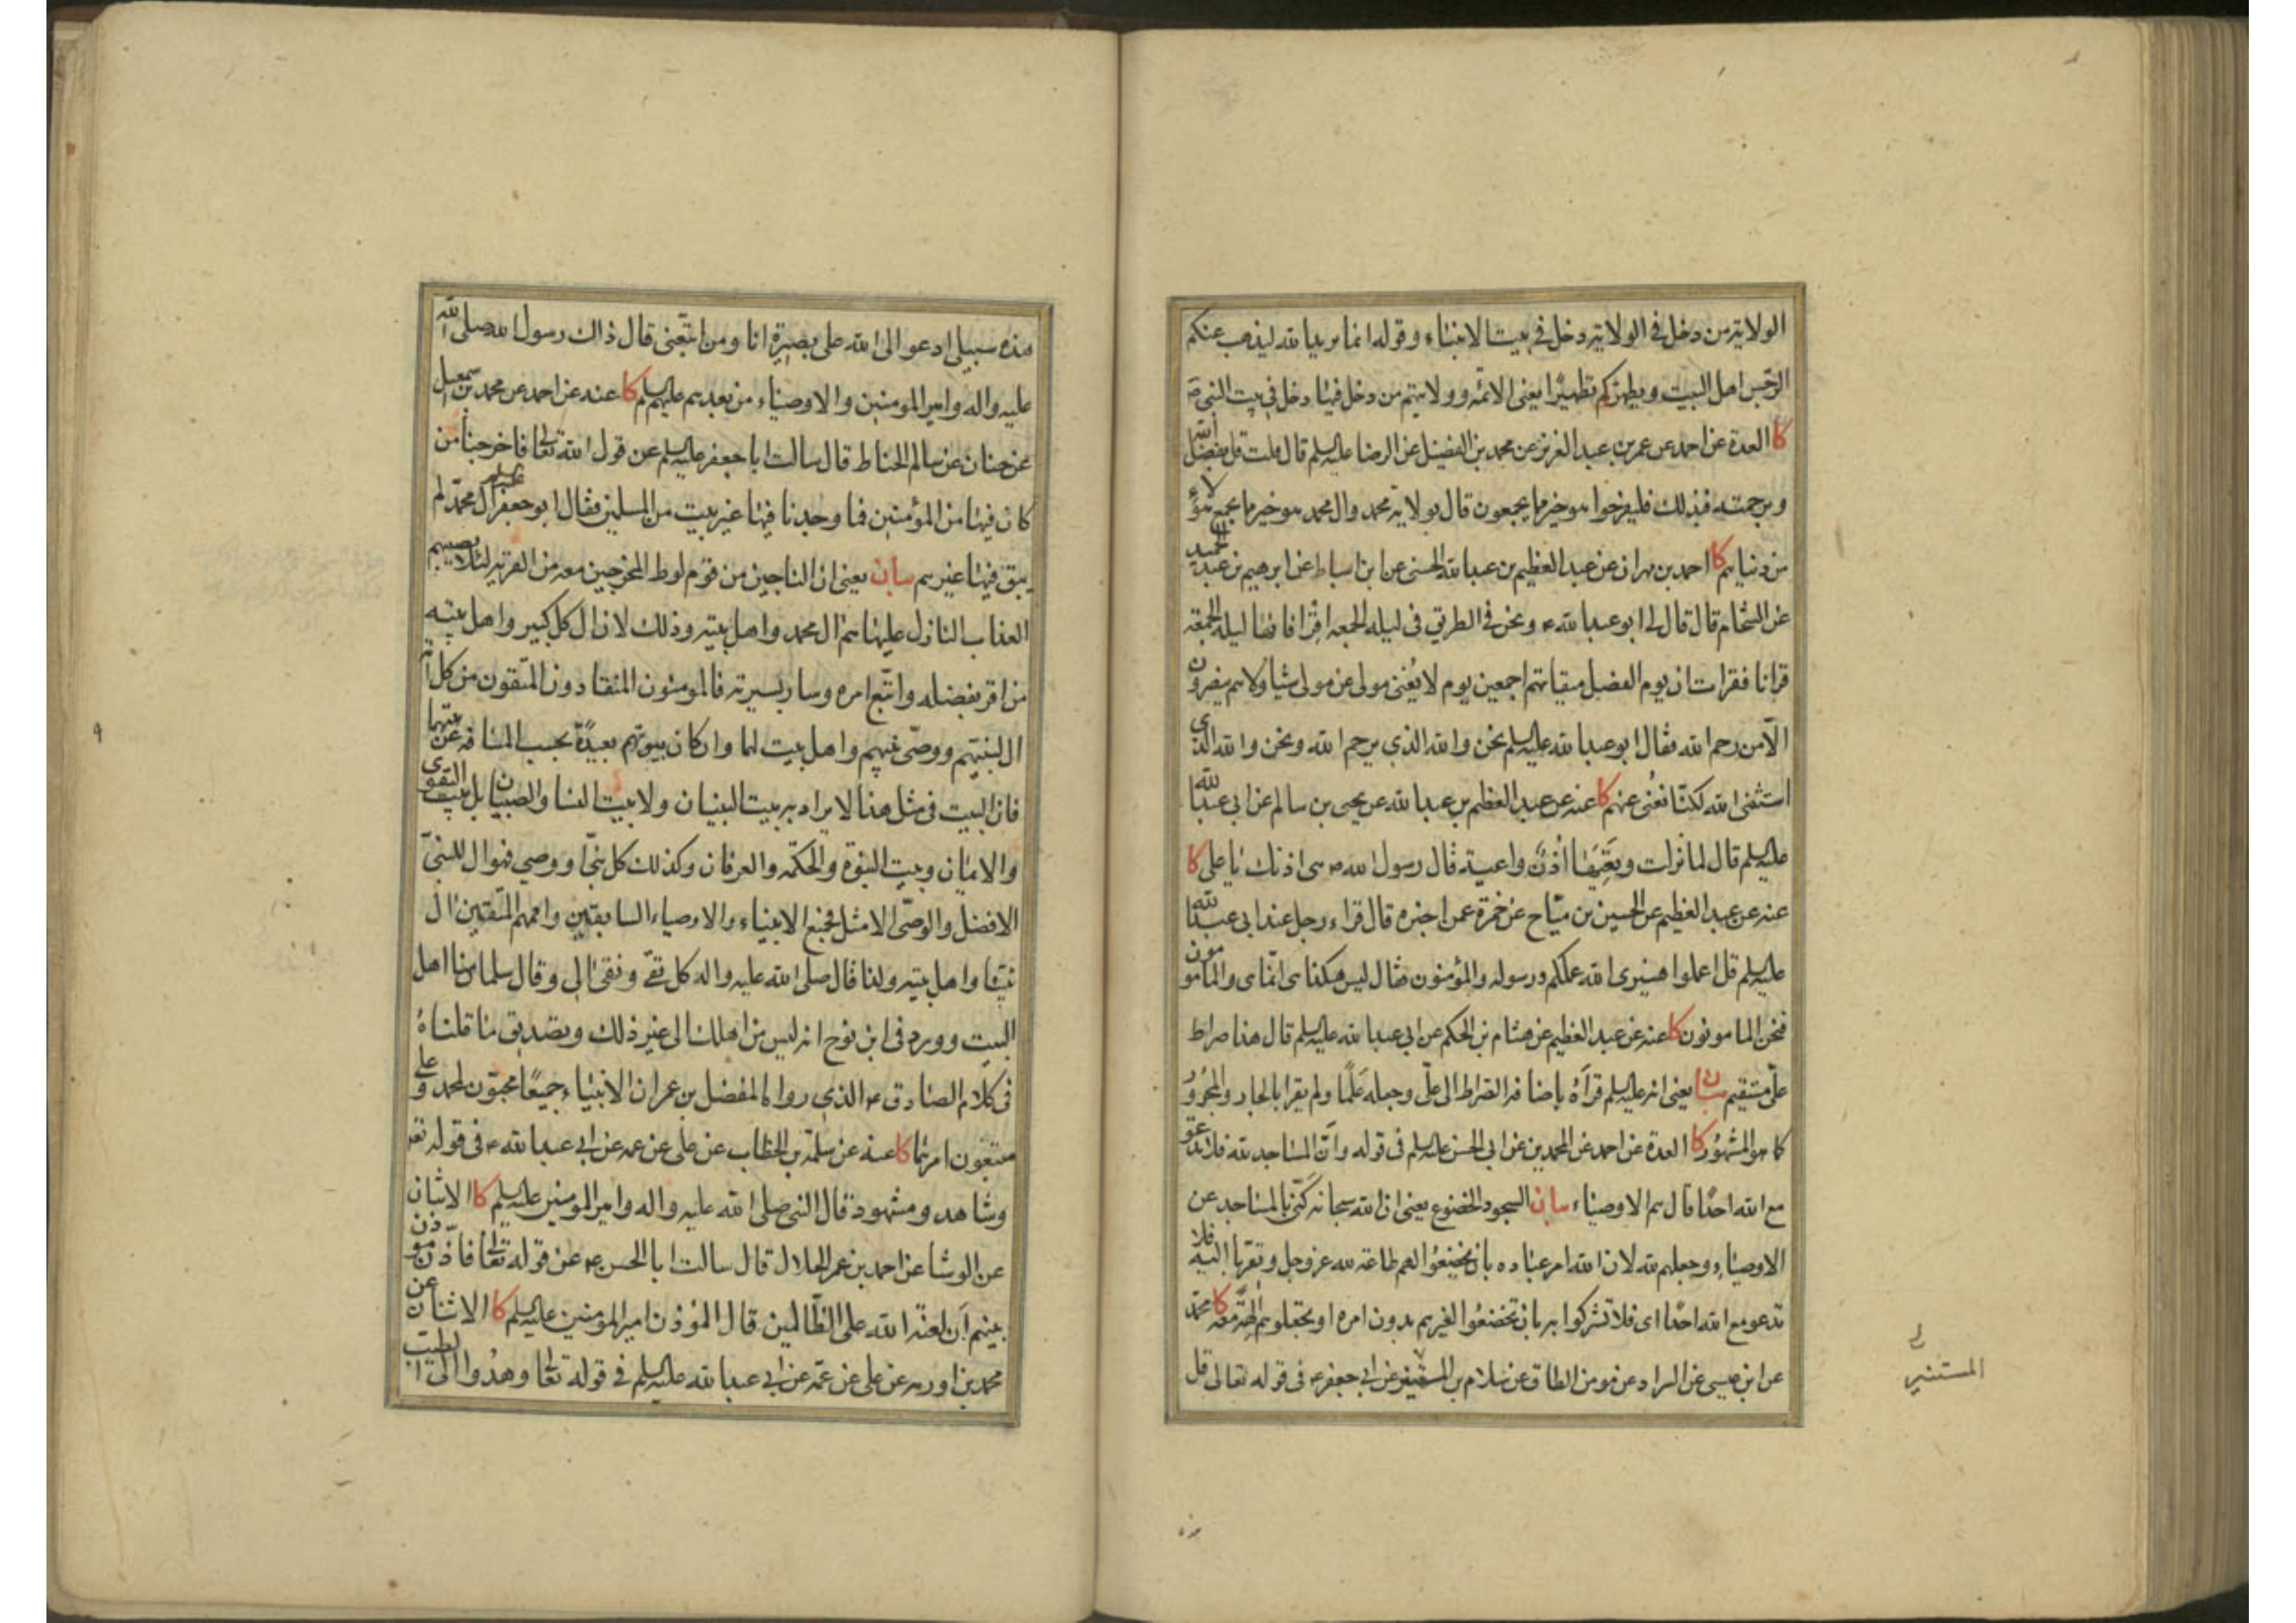 الولاية من دخل في الولاية دخل في بيت الانبياء وقوله انما يريد الله ليذهب عنكم
الرجس اهل البيت ويطهركم تطهيرا يعنى الائمة وولايتهم من دخل فيها دخل في بيت النبي ص
كا العدة عن احمد عن عمر بن عبد العزيز عن محمد بن الفضيل عن الرضا عليه السلم قال قلت قل بفضل الله
وبرحمته فبذلك فليفرحوا هو خير مما يجمعون قال بولاية محمد وال محمد هو خير مما يجمع هؤلاء
من دنياهم كا احمد بن مهران عن عبد العظيم بن عبد الله الحسنى عن ابن اسباط عن ابرهيم بن عبد الحميد
عن الشحام قال قال لى ابو عبد الله ع ونحن في الطريق في ليلة الجمعة اقرأ فانها ليلة الجمعة
قرانا فقرات ان يوم الفصل ميقاتهم اجمعين يوم لا يغنى مولى عن مولى شيا ولا هم ينصرون
الا من رحم الله فقال ابو عبد الله عليه السلم نحن والله الذي يرحم الله ونحن والله الذى
استثنى الله لكنا نغنى عنهم كا عنه عن عبد العظيم بن عبد الله عن يحيى بن سالم عن ابى عبد الله
عليه السلم قال لما نزلت وتعيها اذن واعية قال رسول الله ص هى اذنك يا على كا
عنه عن عبد العظيم عن الحسين بن مياح عن حمزة عمن اخبره قال قراء رجل عند ابى عبد الله
عليه السلم قل اعملوا فسيرى الله عملكم ورسوله والمؤمنون فقال ليس هكذا هى انما هى والمامونون
فنحن المامونون كا عنه عن عبد العظيم عن هشام بن الحكم عن ابى عبد الله عليه السلم قال هذا صراط
على مستقيم بيان يعنى انه عليه السلم قرآه باضافة الصراط الى على وجعله علما ولم يقرا بالجار والمجرور
كما هو المشهور كا العدة عن احمد عن المحمدين عن ابى الحسن عليه السلم في قوله وان المساجد لله فلا تدعوا
مع الله احدا قال هم الاوصياء بيان السجود الخضوع يعنى ان الله سبحانه كنى بالمساجد عن
الاوصياء وجعلهم لله لان الله امر عباده بان يخضعوا لهم طاعة لله عز وجل وتقربا اليه فلا
تدعو مع الله احدا اى فلا تشركوا به بان تخضعوا لغيرهم بدون امره او تجعلوهم الهة معه كا محمد
عن ابن عيسى عن السراد عن مومن الطاق عن سلام بن المستنير عن ابى جعفر ع فى قوله تعالى قل
المستنير
هذه سبيلى ادعو الى الله على بصيرة انا ومن اتبعنى قال ذاك رسول الله صلى الله
عليه واله وامير المومنين والاوصياء من بعدهم عليهم السلم كا عنه عن احمد عن محمد بن اسمعيل
عن حنان عن سالم الحناط قال سالت ابا جعفر عليه السلم عن قول الله تعالى فاخرجنا من
كان فيها من المؤمنين فما وجدنا فيها غير بيت من المسلمين فقال ابو جعفر عليه السلم ال محمد لم
يبق فيها غيرهم بيان يعنى ان الناجين من قوم لوط المخرجين معه من القرية لئلا يصيبهم
العذاب النازل عليها هم ال محمد واهل بيته وذلك لان ال كل كبير واهل بيته
من اقر بفضله واتبع امره وسار بسيرته فالمومنون المنقادون المتقون من كل امة
ال لنبيهم ووصى نبيهم واهل بيت لهما وان كان بيوتهم بعيدة بحسب المسافة عن بيتهما
فان البيت فى مثل هذا لا يراد به بيت البنيان ولا بيت النسا والصبيان بل بيت التقوى
والايمان وبيت النبوة والحكمة والعرفان وكذلك كل نبى او وصى فهو ال للنبى
الافضل والوصى الامثل فجميع الانبياء والاوصياء السابقين واممهم المتقين ال
نبينا واهل بيته ولذا قال صلى الله عليه واله كل تقى ونقى الى وقال سلمان منا اهل
البيت وورد فى ابن نوح انه ليس من اهلك الى غير ذلك وتصديق ما قلناه
فى كلام الصادق ع الذي رواه المفضل بن عمر ان الانبياء جميعا محبون لمحمد وعلى
متبعون امرهما كا عنه عن سلمة بن الخطاب عن على عن عمه عن ابى عبد الله ع فى قوله تعالى
وشاهد ومشهود قال النبى صلى الله عليه واله وامير المومنين عليه السلم كا الاثنان
عن الوشا عن احمد بن عمر الحلال قال سالت ابا الحسن ع عن قوله تعالى فاذن موذن
بينهم ان لعنة الله على الظالمين قال المؤذن امير المومنين عليه السلم كا الاثنان عن
محمد بن اورمه عن على عن عمه عن ابى عبد الله عليه السلم فى قوله تعالى وهدوا الى الطيب
٩